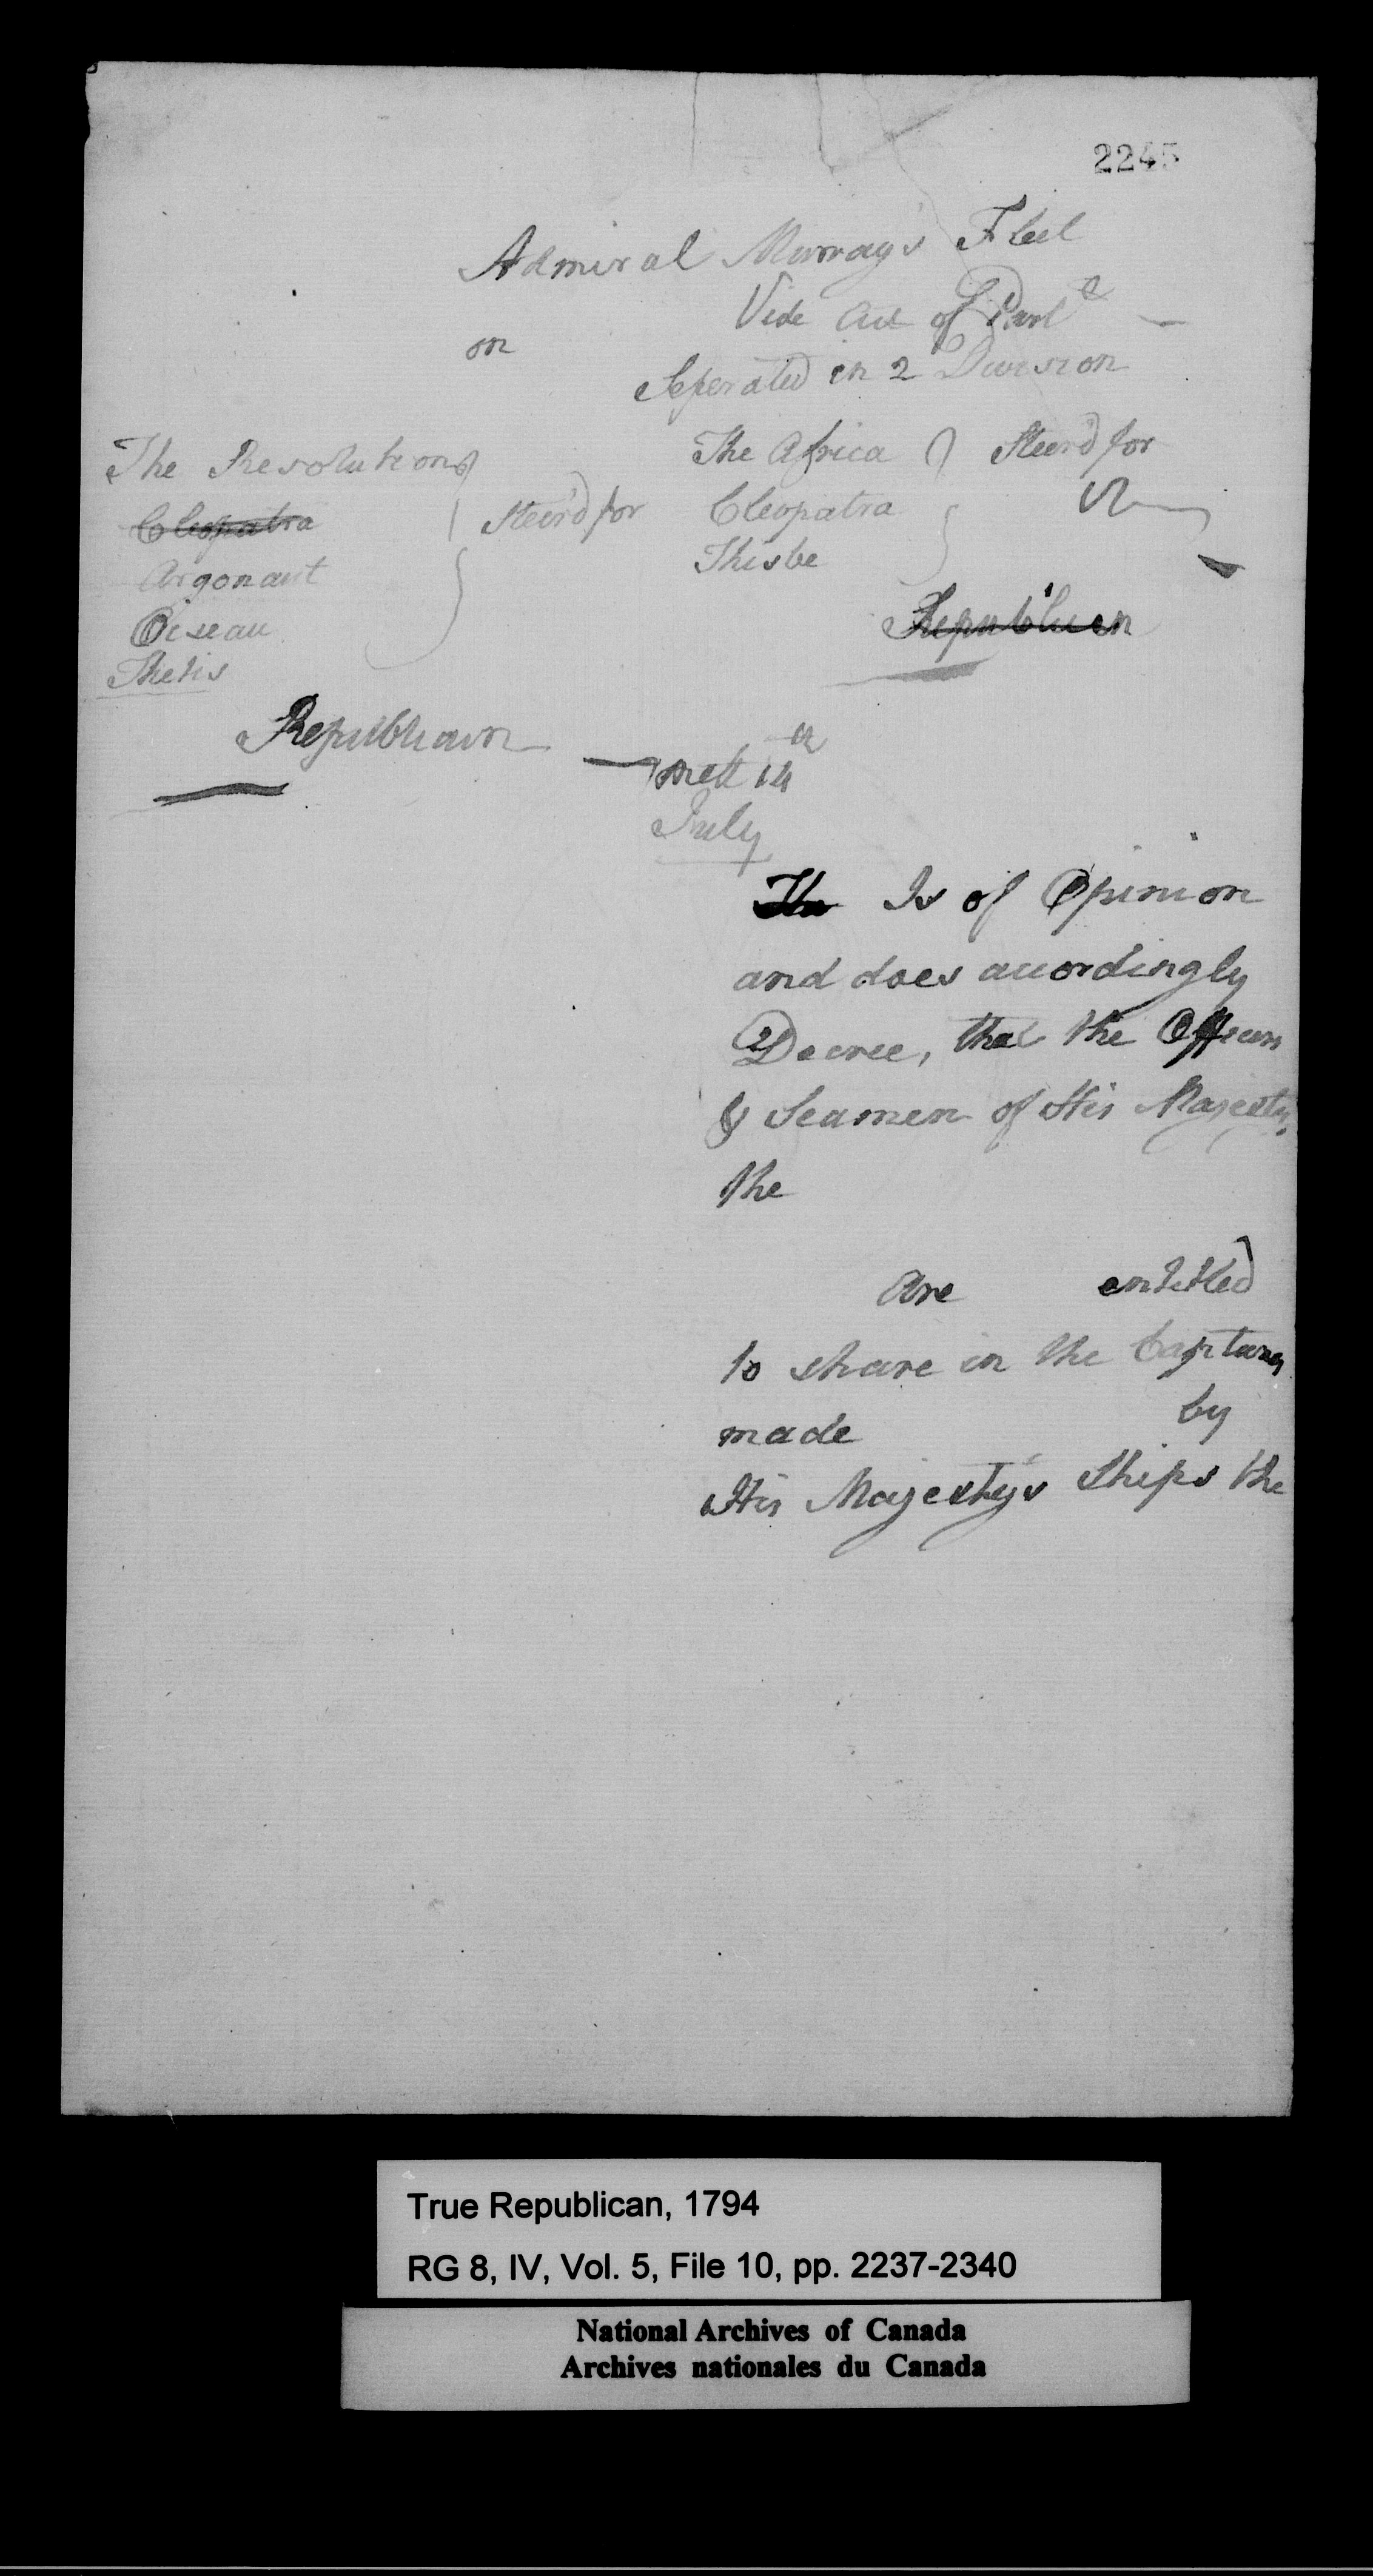 2245
Admiral Murray's Fleet
Vide Act of Parl
on
Seperated in 2 Division
The Resolution
Cleopatra
Argonaut
Oiseau
Thetis
Steer'd for
The Africa
Cleopatra
Thisbe
Steer'd for
Republican
Republican
mett 14th
July
Is of Opinion
and does accordingly
Decree, that the Officers
& Seamen of His Majestys
the
are entitled
to share in the Captures
made by
His Majestys Ships the
True Republican, 1794
RG 8, IV, Vol. 5, File 10, pp. 2237-2340
National Archives of Canada
Archives nationales du Canada